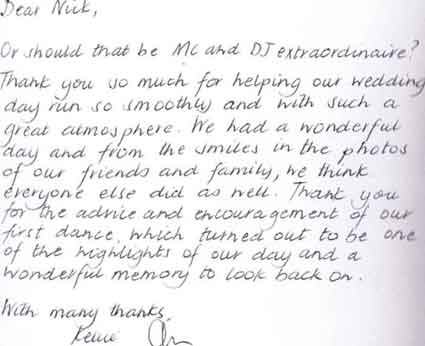 Dear Nick,
Or should that be MC and DJ extraordinaire?
Thank you so much for helping our wedding
day run so smoothly and with such a
great atmosphere. We had a wonderful
day and from the smiles in the photos
of our friends and family, we think
everyone else did as well. Thank you
for the advice and encouragement of our
first dance, which turned out to be one
of the highlights of our day and a
wonderful memory to look back on.
With many thanks,